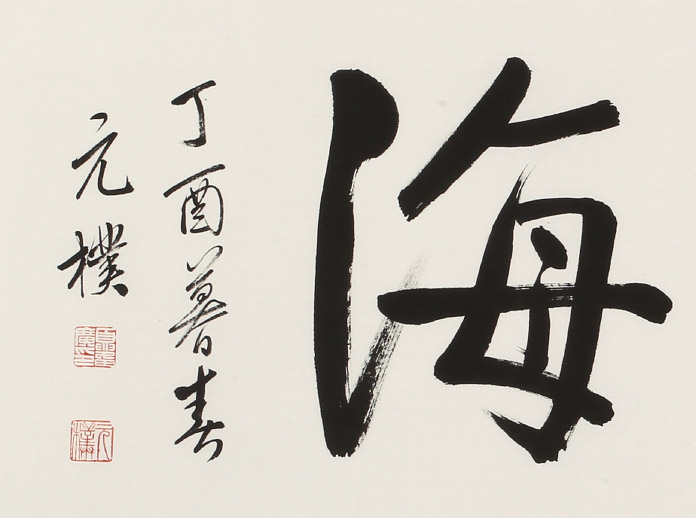 海
丁酉暮春
元樸